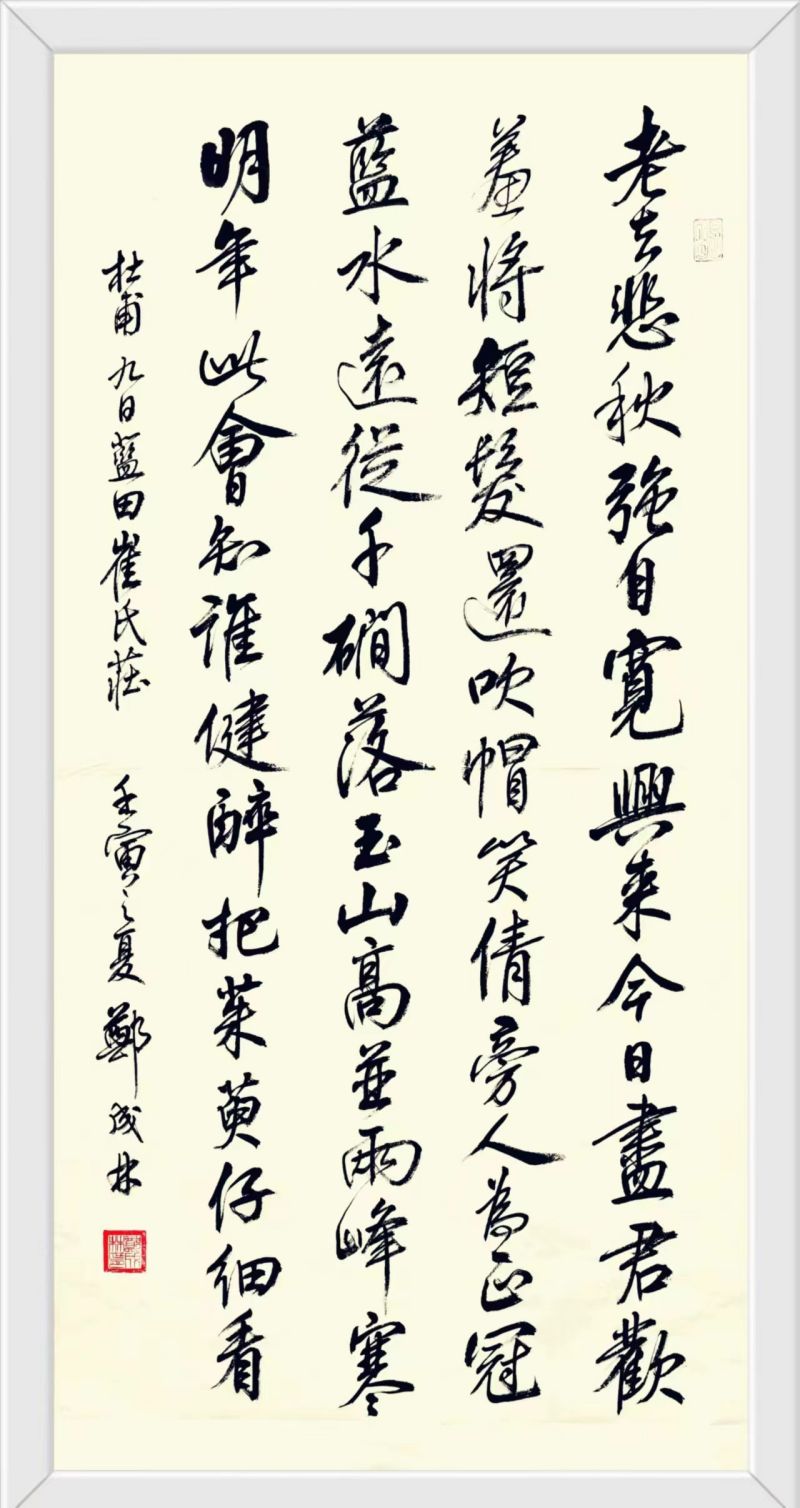 老去悲秋強自寬興来今日盡君歡
羞將短髮還吹帽笑倩旁人為正冠
藍水遠從千磵落玉山高並兩峰寒
明年此會知誰健醉把茱萸仔細看
杜甫九日藍田崔氏莊 壬寅之夏鄭成林